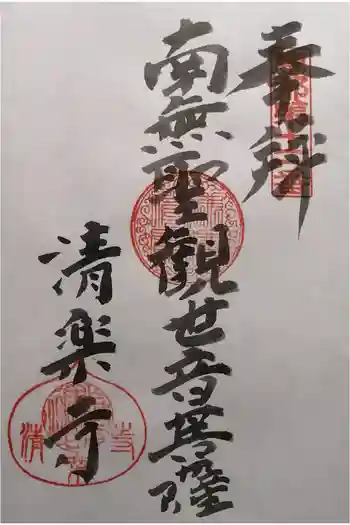 奉拝
南無聖観世音菩薩
清楽寺